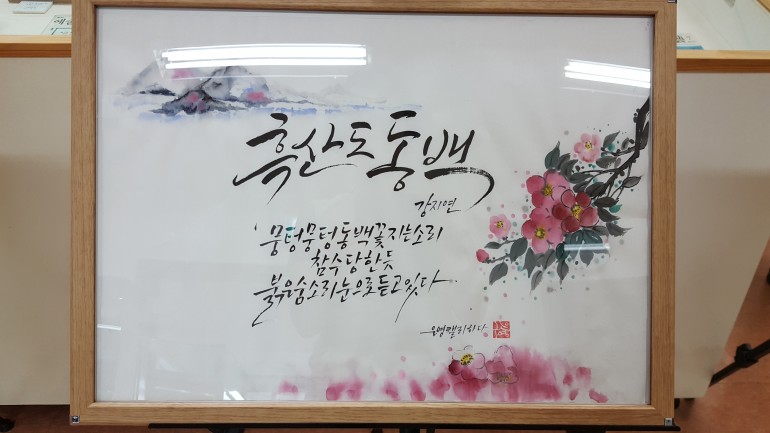 흑산도 동백
강지연
뭉텅뭉텅 동백꽃 지는 소리
참수 당한 듯
붉은 숨소리 눈으로 듣고 있다
캘리하다